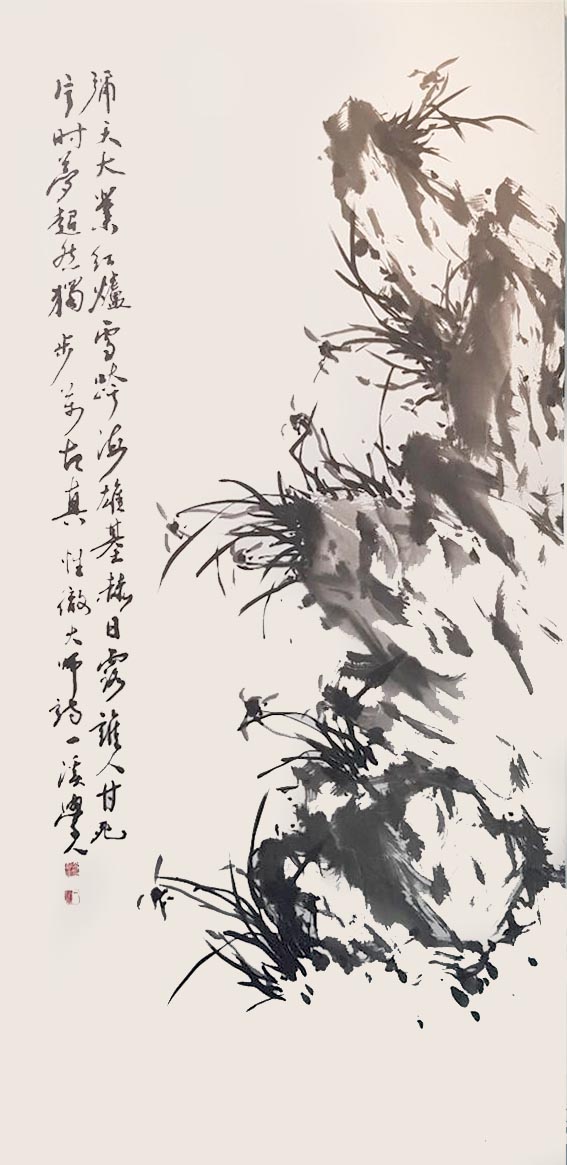 彌天大業紅爐雪跨海雄基赫日露誰人甘死
片時夢超然獨步萬古真 性徹大師詩一溪學人